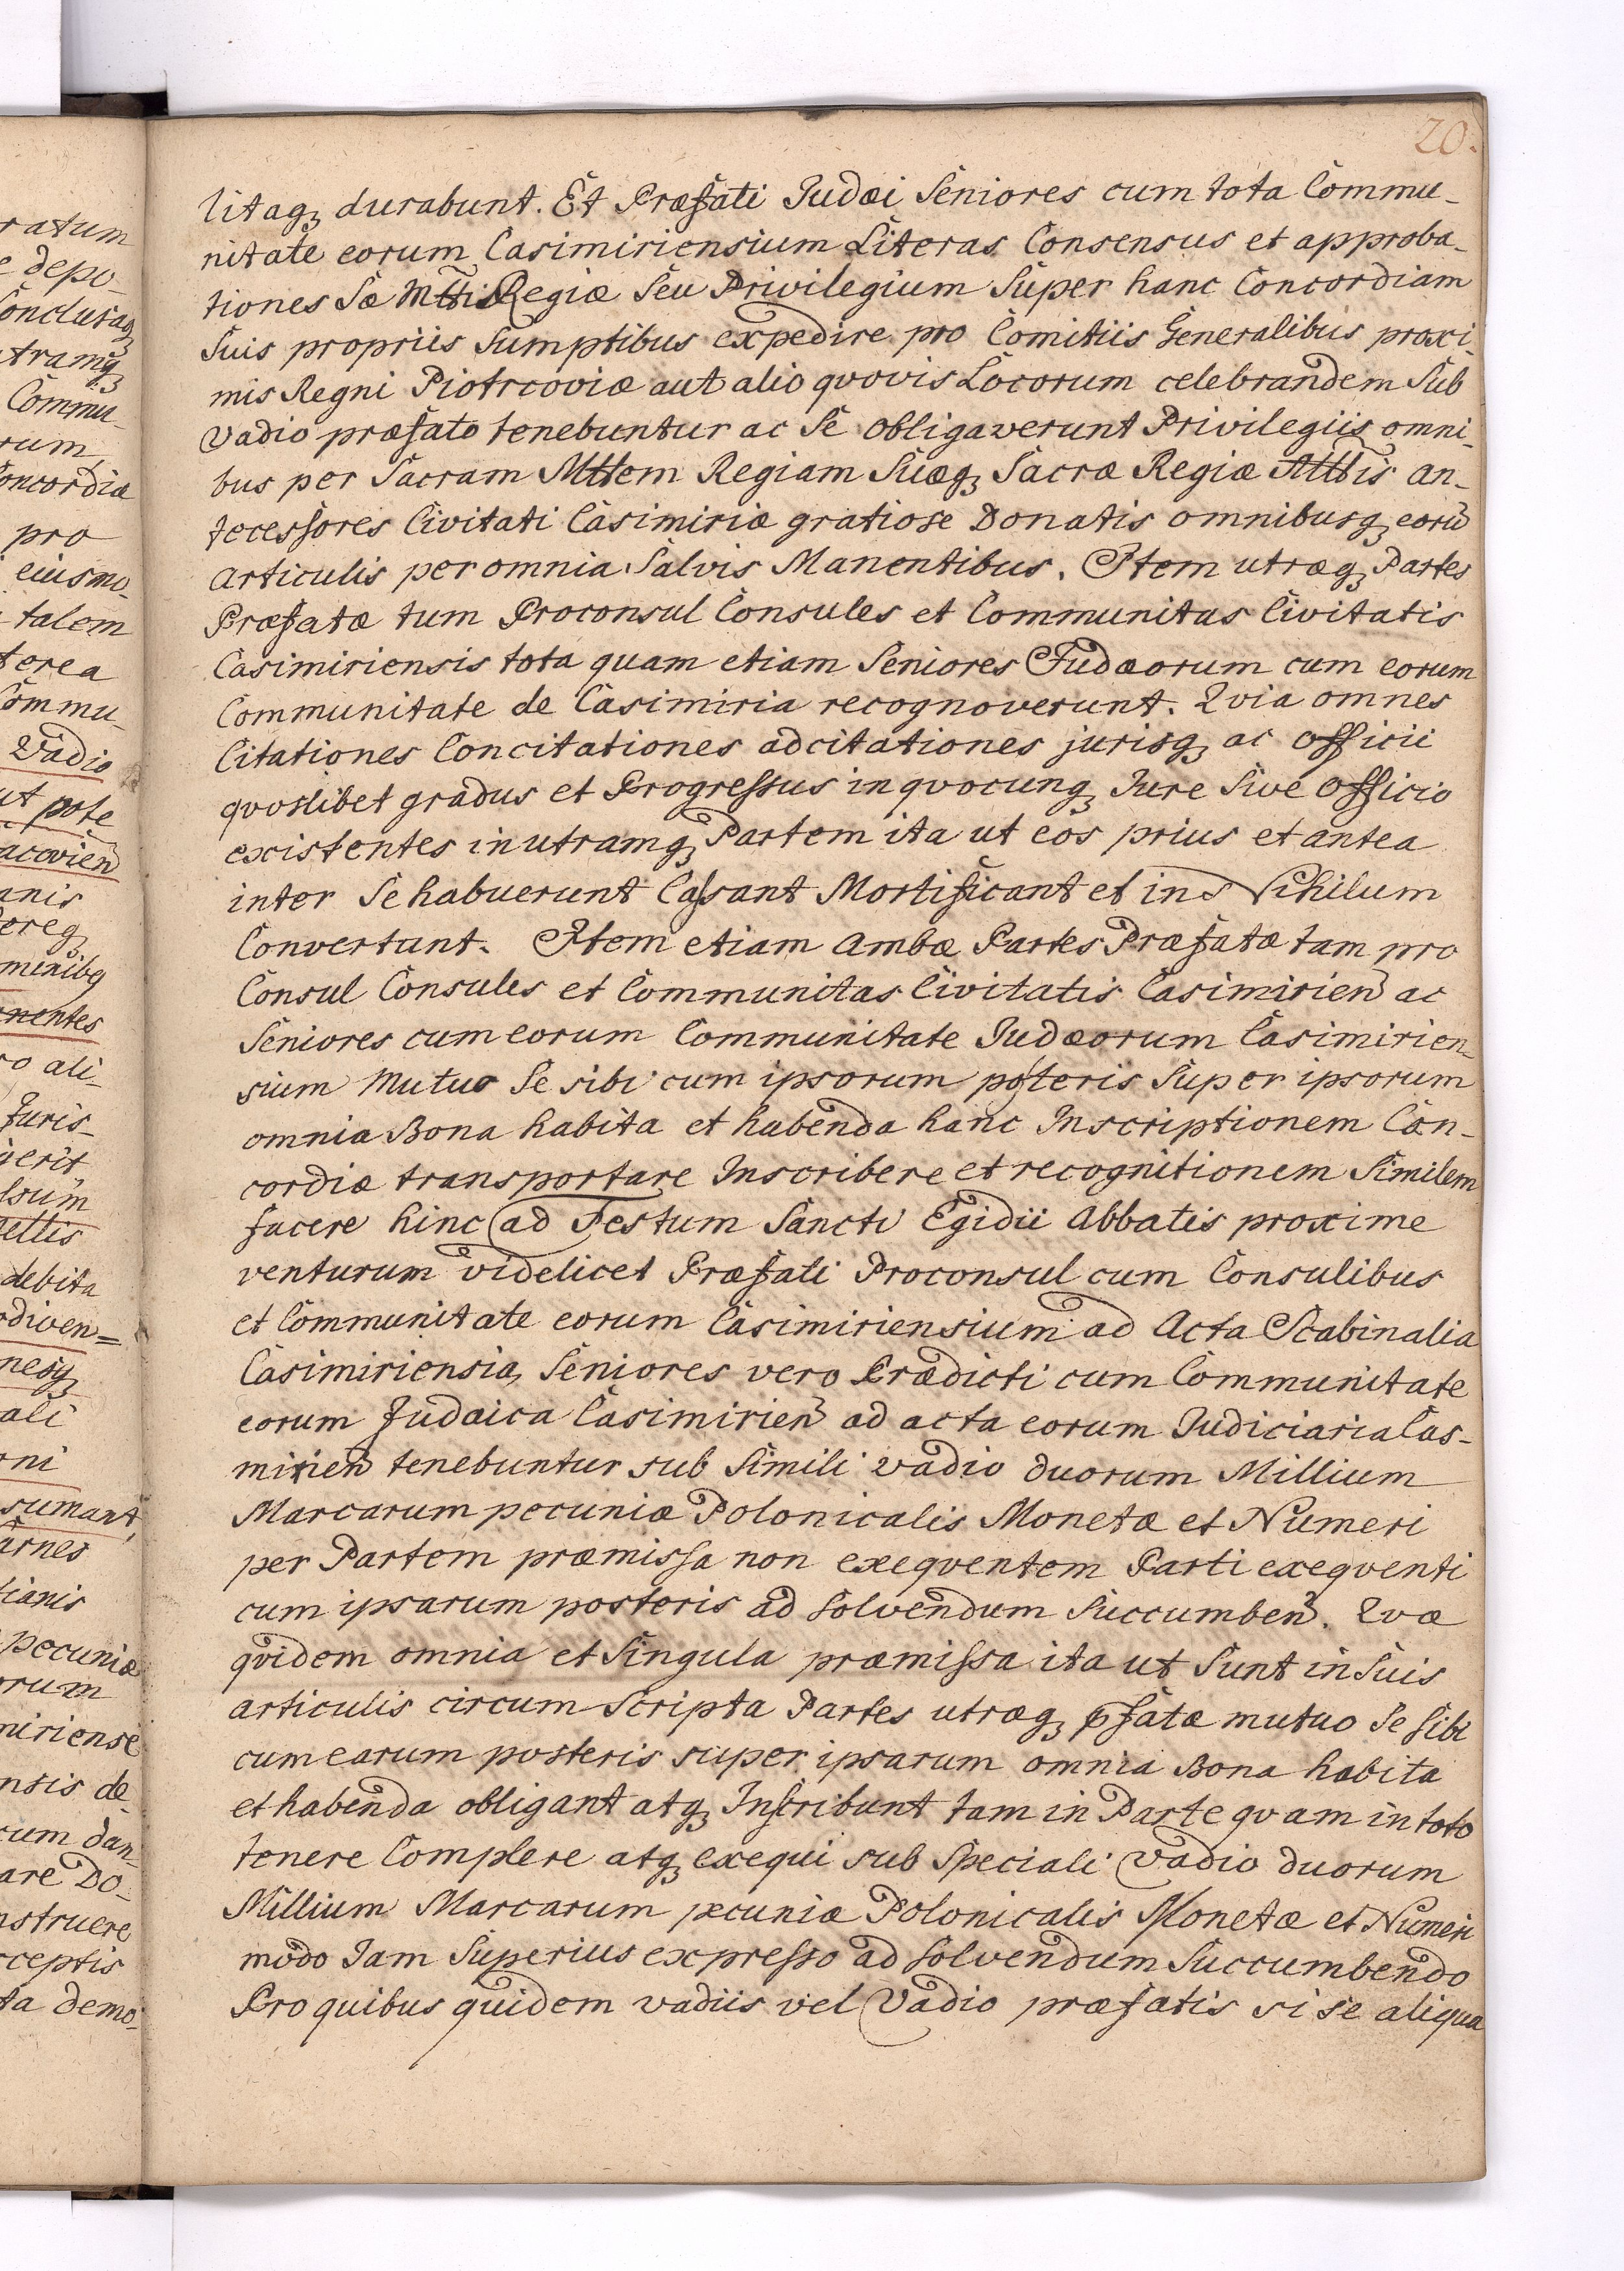 20.
litaq durabunt. Et Præfati Judæi Seniores cum tota Commu-
nitate eorum Casimiriensium Literas Consensus et approba-
tiones Sæ Mttis Regiæ Seu Privilegium Super hanc Concordiam
Suis propriis Sumptibus expedire pro Comitiis Generalibus proxi-
mis Regni Piotrcoviæ aut alio qvovis Locorum celebrandem Sub
Vadio præfato tenebuntur ac Se obligaverunt Privilegiis omni-
bus per Sacram Mttem Regiam Suæq Sacræ Regiæ Mttis an-
tecessores Civitati Casimiriæ gratiose Donatis omnibusq eorū
Articulis per omnia Salvis Manentibus. Item utræq Partes
Præfatæ tum Proconsul Consules et Communitas Civitatis
Casimiriensis tota quam etiam Seniores Judæorum cum eorum
Communitate de Casimiria recognoverunt. Qvia omnes
Citationes Concitationes adcitationes jurisq ac officii
qvoslibet gradus et Progressus in qvocunq Jure Sive officio
existentes in utramq Partem ita ut eos prius et antea
inter Se habuerunt Cassant Mortificant et in Nihilum
Convertunt. Item etiam Ambæ Partes Præfatæ tam pro
Consul Consules et Communitas Civitatis Casimirien ac
Seniores cum eorum Communitate Judæorum Casimirien-
sium Mutuo Se sibi cum ipsorum posteris Super ipsorum
omnia Bona habita et habenda hanc Inscriptionem Con-
cordiæ transportare Inscribere et recognitionem Similem
facere hinc ad Festum Sancti Egidii Abbatis proxime
venturum videlicet Præfati Proconsul cum Consulibus
et Communitate eorum Casimiriensium ad Acta Scabinalia
Casimiriensia, Seniores vero Prædicti cum Communitate
eorum Judaica Casimirien ad acta eorum Judiciaria Cas-
mirien tenebuntur sub Simili vadio duorum Millium
Marcarum pecuniæ Polonicalis Monetæ et Numeri
per Partem præmissa non exeqventem Parti exeqventi
cum ipsarum posteris ad Solvendum Succumben. Qvæ
qvidem omnia et Singula præmissa ita ut Sunt in Suis
articulis circum Scripta Partes utræq pfatæ mutuo Se Sibi
cum earum posteris super ipsarum omnia Bona habita
et habenda obligant atq Inscribunt tam in Parte qvam in toto
tenere Complere atq exequi sub Speciali Vadio duorum
Millium Marcarum pecuniæ Polonicalis Monetæ et Numeri
modo Jam Superius expresso ad Solvendum Succumbendo
Pro quibus quidem vadiis vel Vadio præfatis si se aliqua